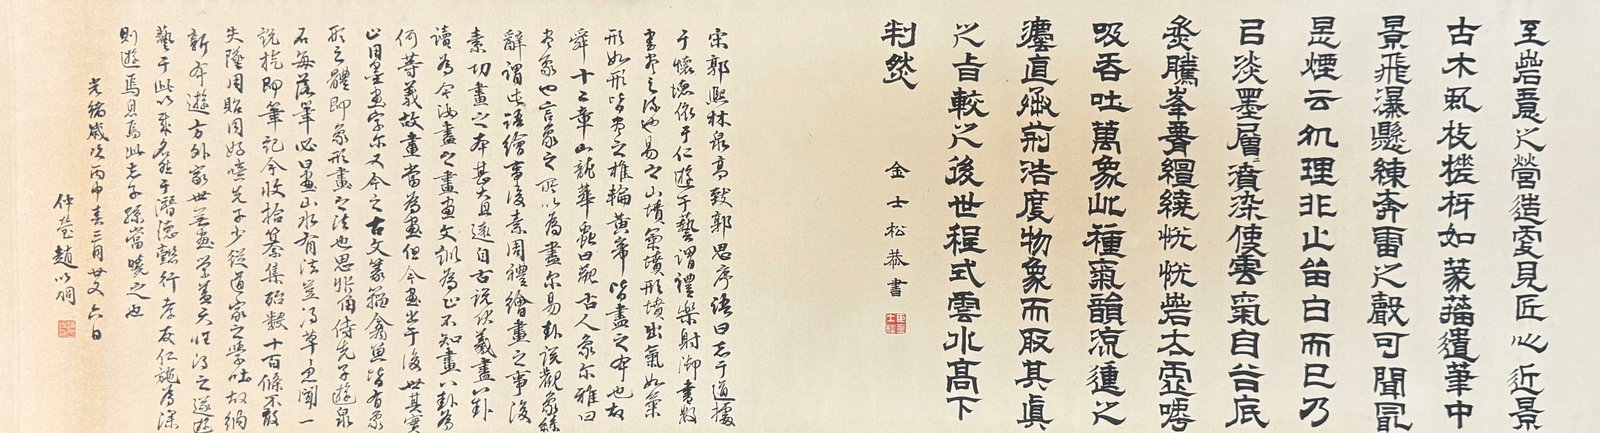 至意之營造見匠心近景
古木虬枝槎枒如篆籀遺筆中
景飛瀑懸練奔雷之聲可聞冣
是煙云肌理非止留白而已乃
以淡墨層漬染使雲氣自谷底
蒸騰峯脊繒繞恍恍若太虛嘑
吸吞吐萬象此種氣韻流連之
灋直承荊浩度物象而取其真
之旨較之後世程式雲水高下
判然
金士松恭書
宋郭熙林泉高致郭思序語曰志于道據
于德依于仁遊于藝謂禮樂射御書數
書畫之流也易之山墳氣墳形墳出氣如氣
形如形皆畫之椎輪黃帝皆畫之本也故
舜十二章山龍華蟲曰觀古人象爾雅曰
畫象也言象之所以為畫尔易卦說觀象繫
辭謂此語繪事後素周禮繪畫之事後
素功畫之本甚大且遠自古說伏羲畫八卦
讀為今汝畫之畫畫文訓為止不知畫八卦為
何等義故畫當為畫但今畫出于後世其實
止用畫字尔又今之古文篆籀禽魚皆有象
形之體即象形畫之法也思丱角侍先子遊泉
石每落筆必曰畫山水有法豈得草草思聞一
說旋即筆記今收拾纂集殆數十百條不敢
失墜用貽同好噫先子少從道家之學吐故納
新本遊方外家世無畫學蓋天性得之遂遊
藝于此以成名然于潛德懿行孝友仁施為深
則遊焉息焉此志子孫當曉之也
光緒歲次丙申春三月廿又六日
仲瑩趙以炯